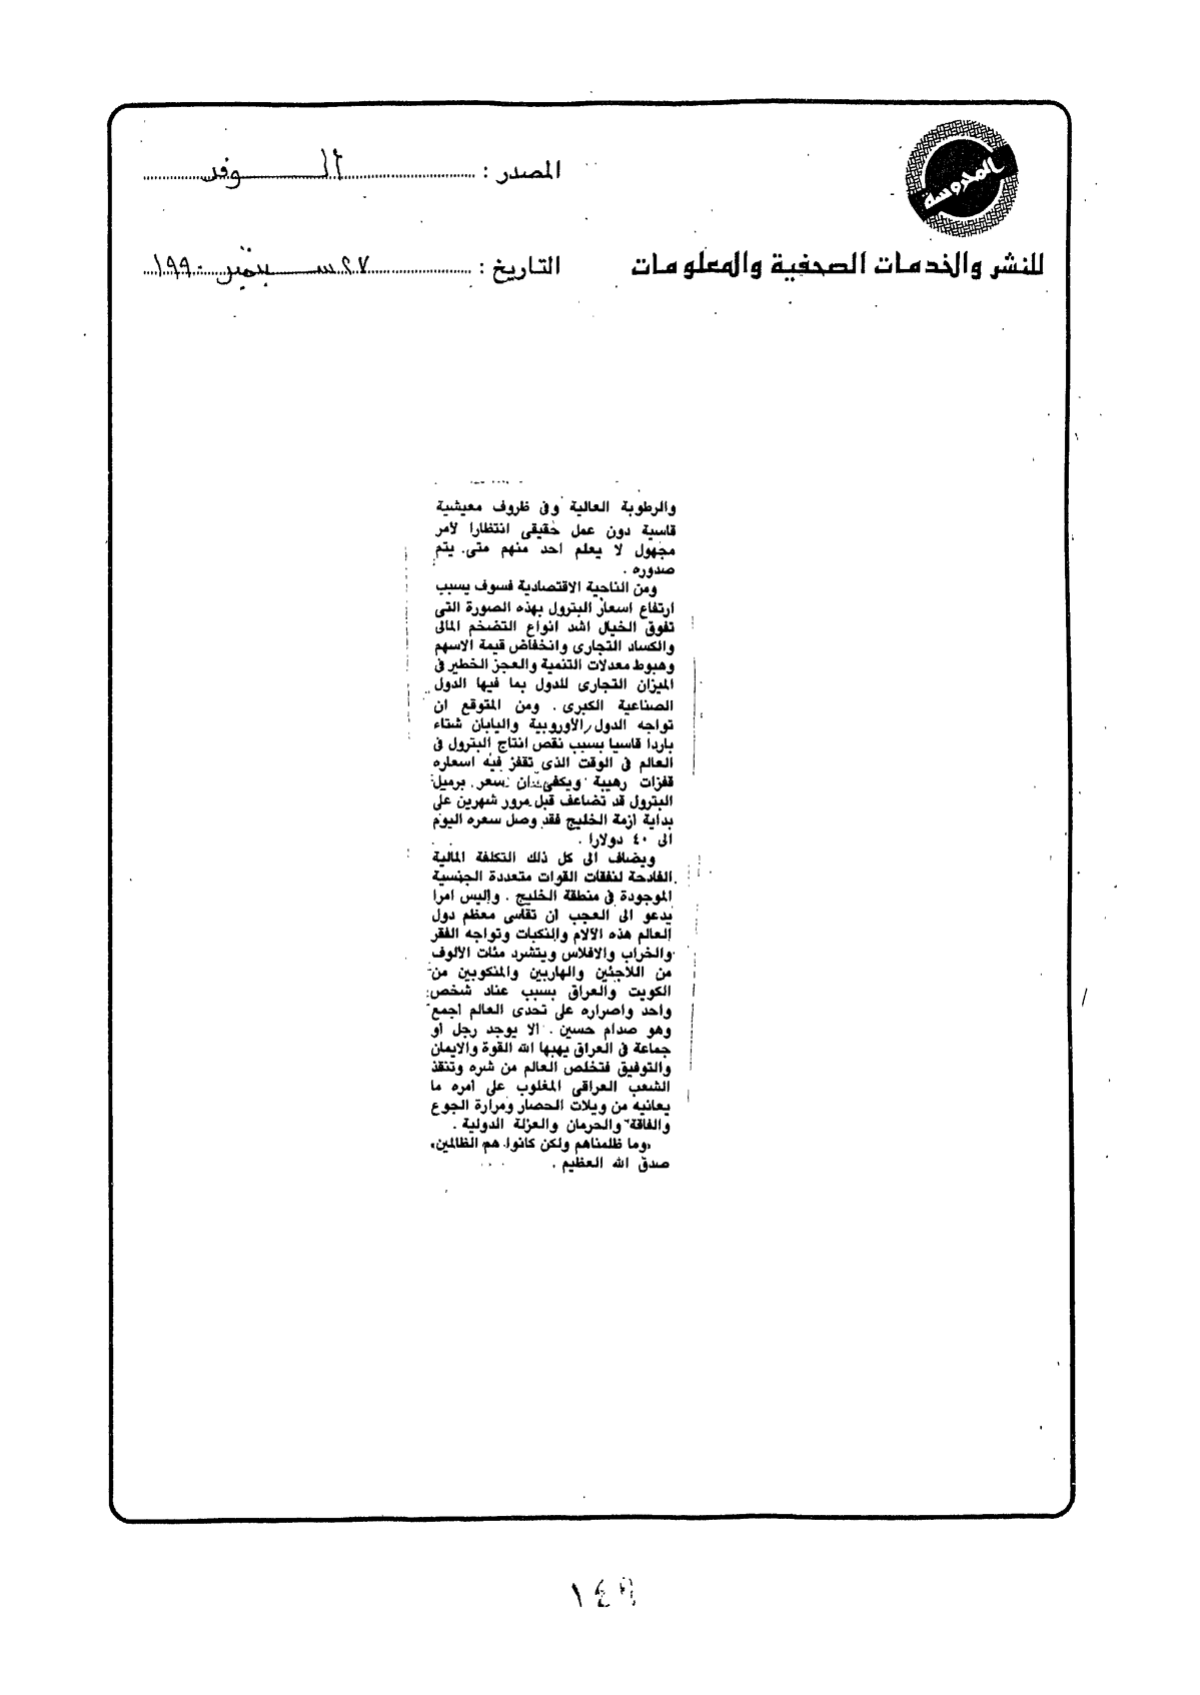 المحروسة
المصدر : الوفد
للنشر والخدمات الصحفية والمعلومات
التاريخ : ٢٧ سبتمبر ١٩٩٠
والرطوبة العالية وفى ظروف معيشية
قاسية دون عمل حقيقى انتظارا لأمر
مجهول لا يعلم احد منهم متى يتم
صدوره .
ومن الناحية الاقتصادية فسوف يسبب
ارتفاع اسعار البترول بهذه الصورة التى
تفوق الخيال اشد انواع التضخم المالى
والكساد التجارى وانخفاض قيمة الاسهم
وهبوط معدلات التنمية والعجز الخطير فى
الميزان التجارى للدول بما فيها الدول
الصناعية الكبرى . ومن المتوقع ان
تواجه الدول الأوروبية واليابان شتاء
باردا قاسيا بسبب نقص انتاج البترول فى
العالم فى الوقت الذى تقفز فيه اسعاره
قفزات رهيبة ويكفى ان سعر برميل
البترول قد تضاعف قبل مرور شهرين على
بداية ازمة الخليج فقد وصل سعره اليوم
الى ٤٠ دولارا .
ويضاف الى كل ذلك التكلفة المالية
الفادحة لنفقات القوات متعددة الجنسية
الموجودة فى منطقة الخليج . واليس امرا
يدعو الى العجب ان تقاسى معظم دول
العالم هذه الآلام والنكبات وتواجه الفقر
والخراب والافلاس ويتشرد مئات الالوف
من اللاجئين والهاربين والمنكوبين من
الكويت والعراق بسبب عناد شخص
واحد واصراره على تحدى العالم اجمع
وهو صدام حسين . الا يوجد رجل او
جماعة فى العراق يهبها الله القوة والايمان
والتوفيق فتخلص العالم من شره وتنقذ
الشعب العراقى المغلوب على أمره ما
يعانيه من ويلات الحصار ومرارة الجوع
والفاقة والحرمان والعزلة الدولية .
«وما ظلمناهم ولكن كانوا هم الظالمين»
صدق الله العظيم .
١٤٩